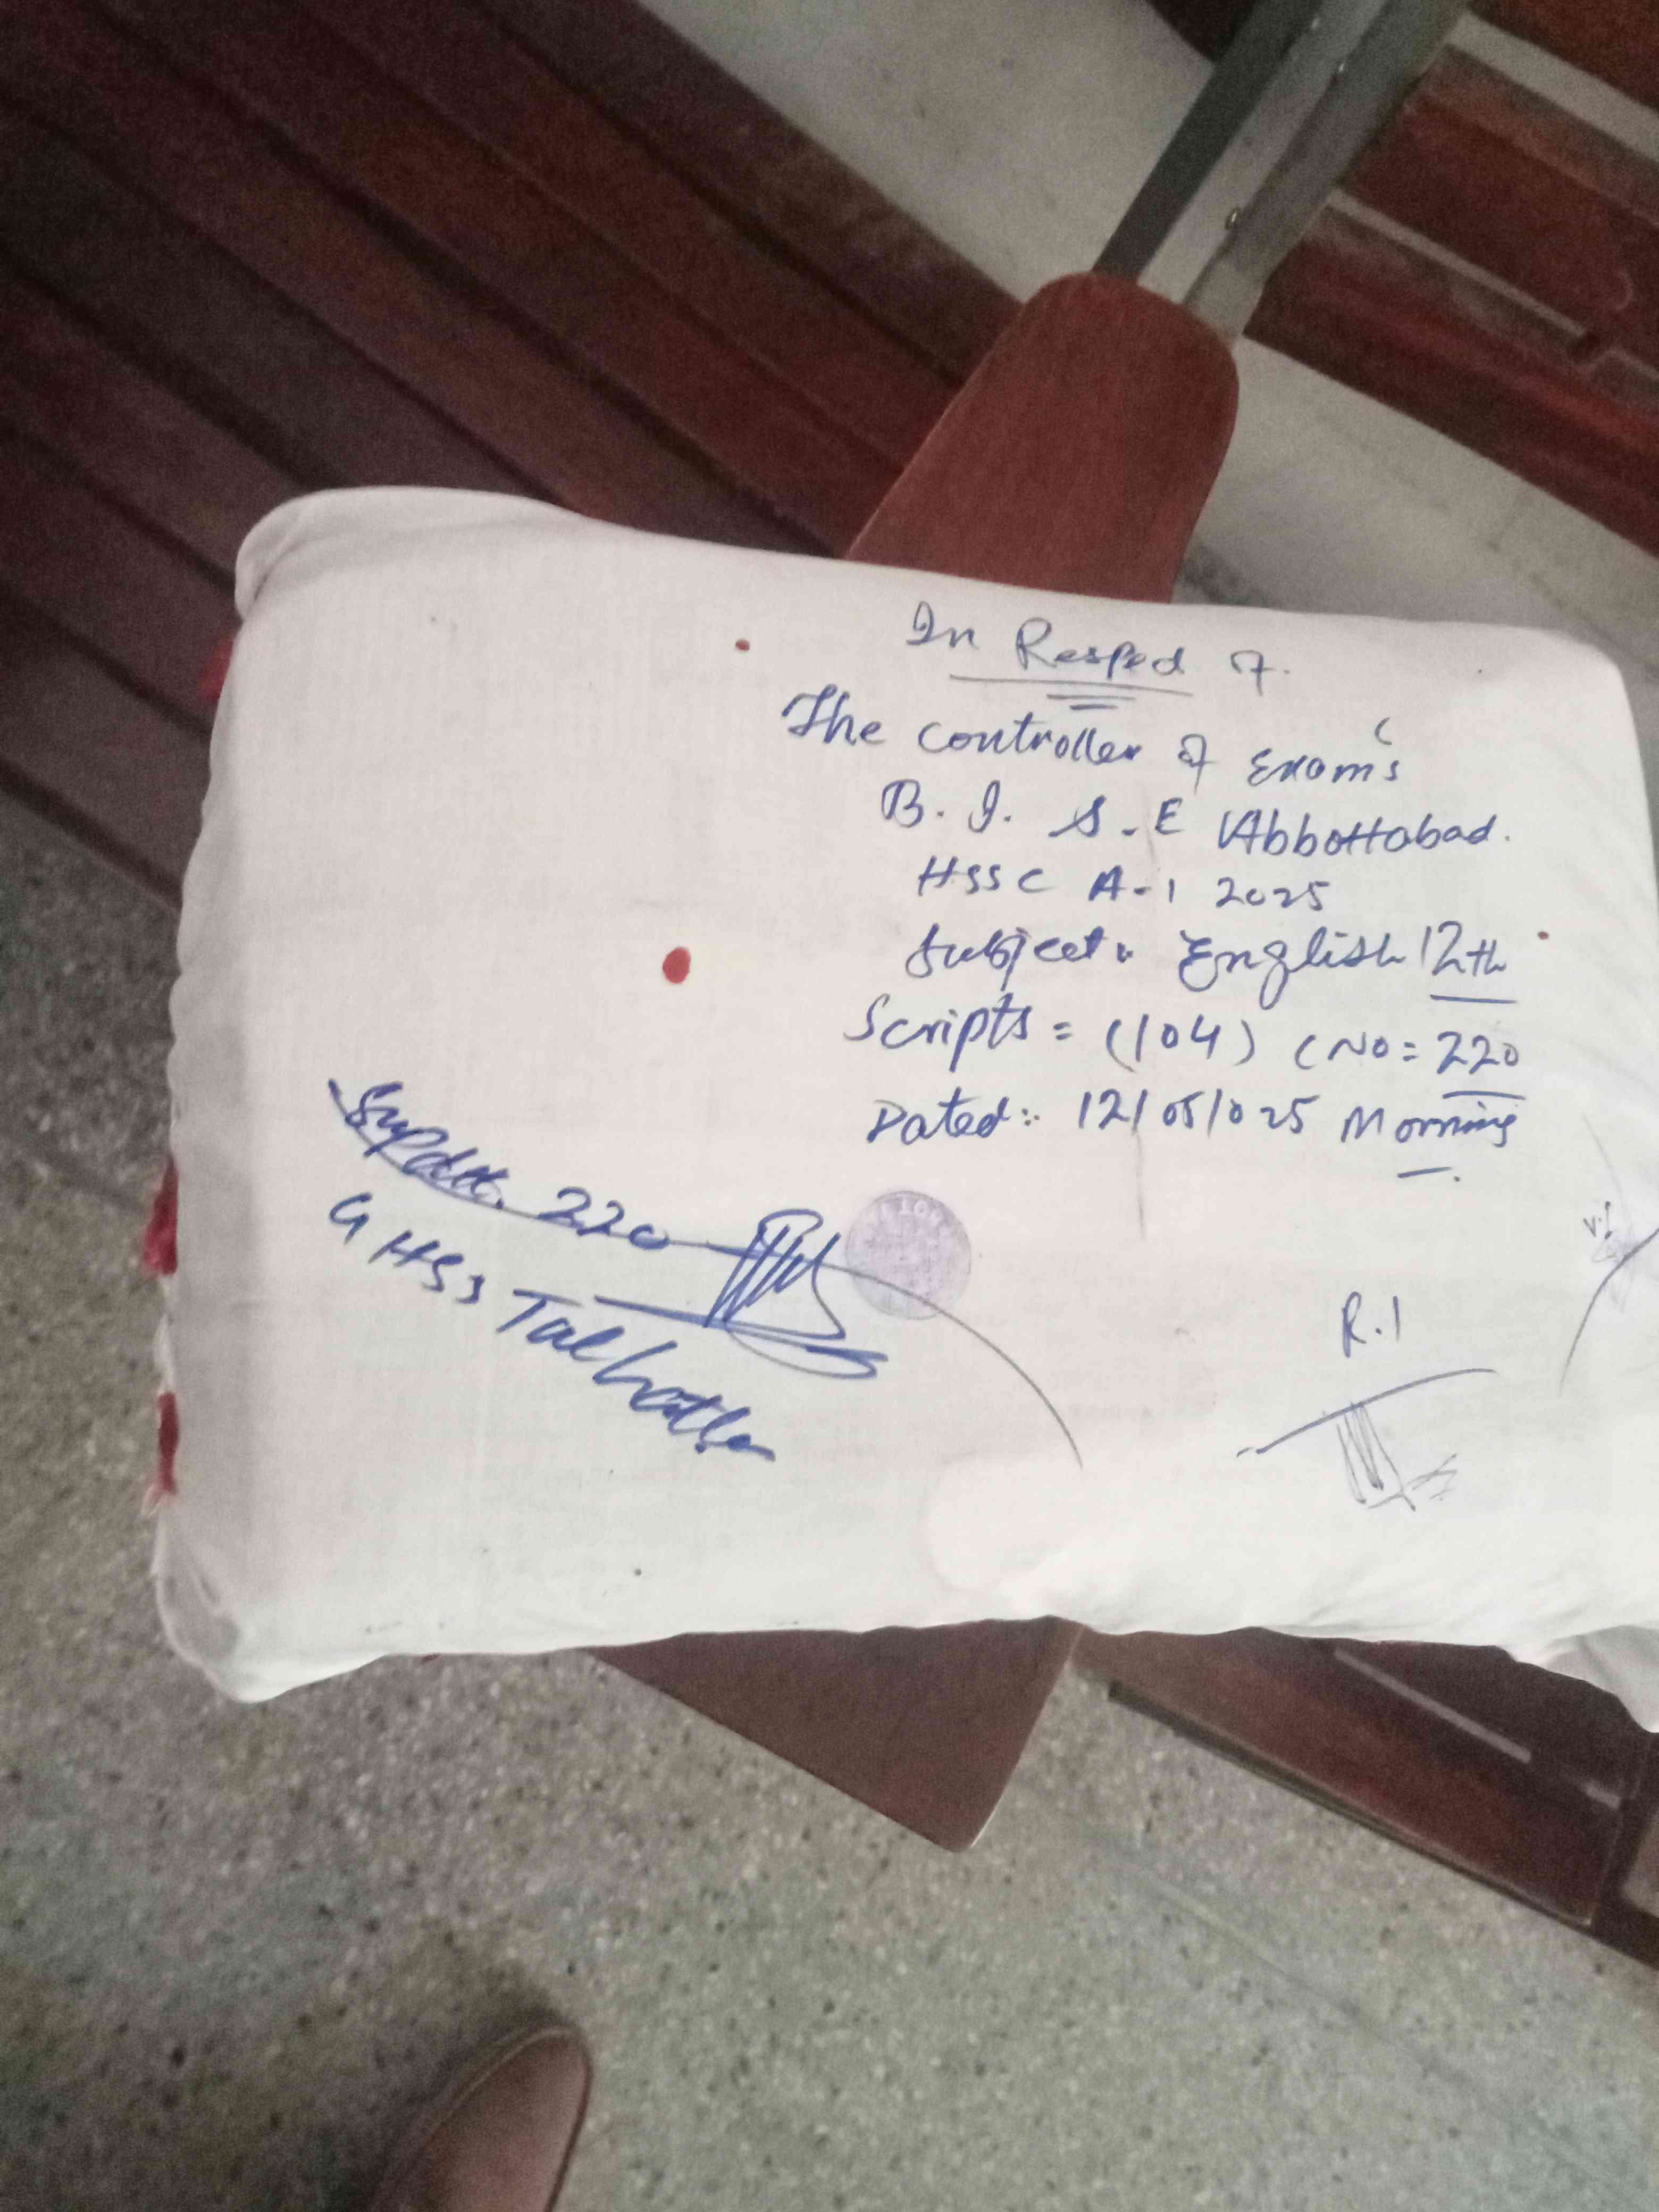 In Respect of.
The controller of Exam's
B. I. S. E Abbottabad.
HSSC A-1 2025
Subject: English 12th
Scripts = (104) CNO = 220
Dated:- 12/05/025 Morning
Supdtt. 220
GHSS
R.1